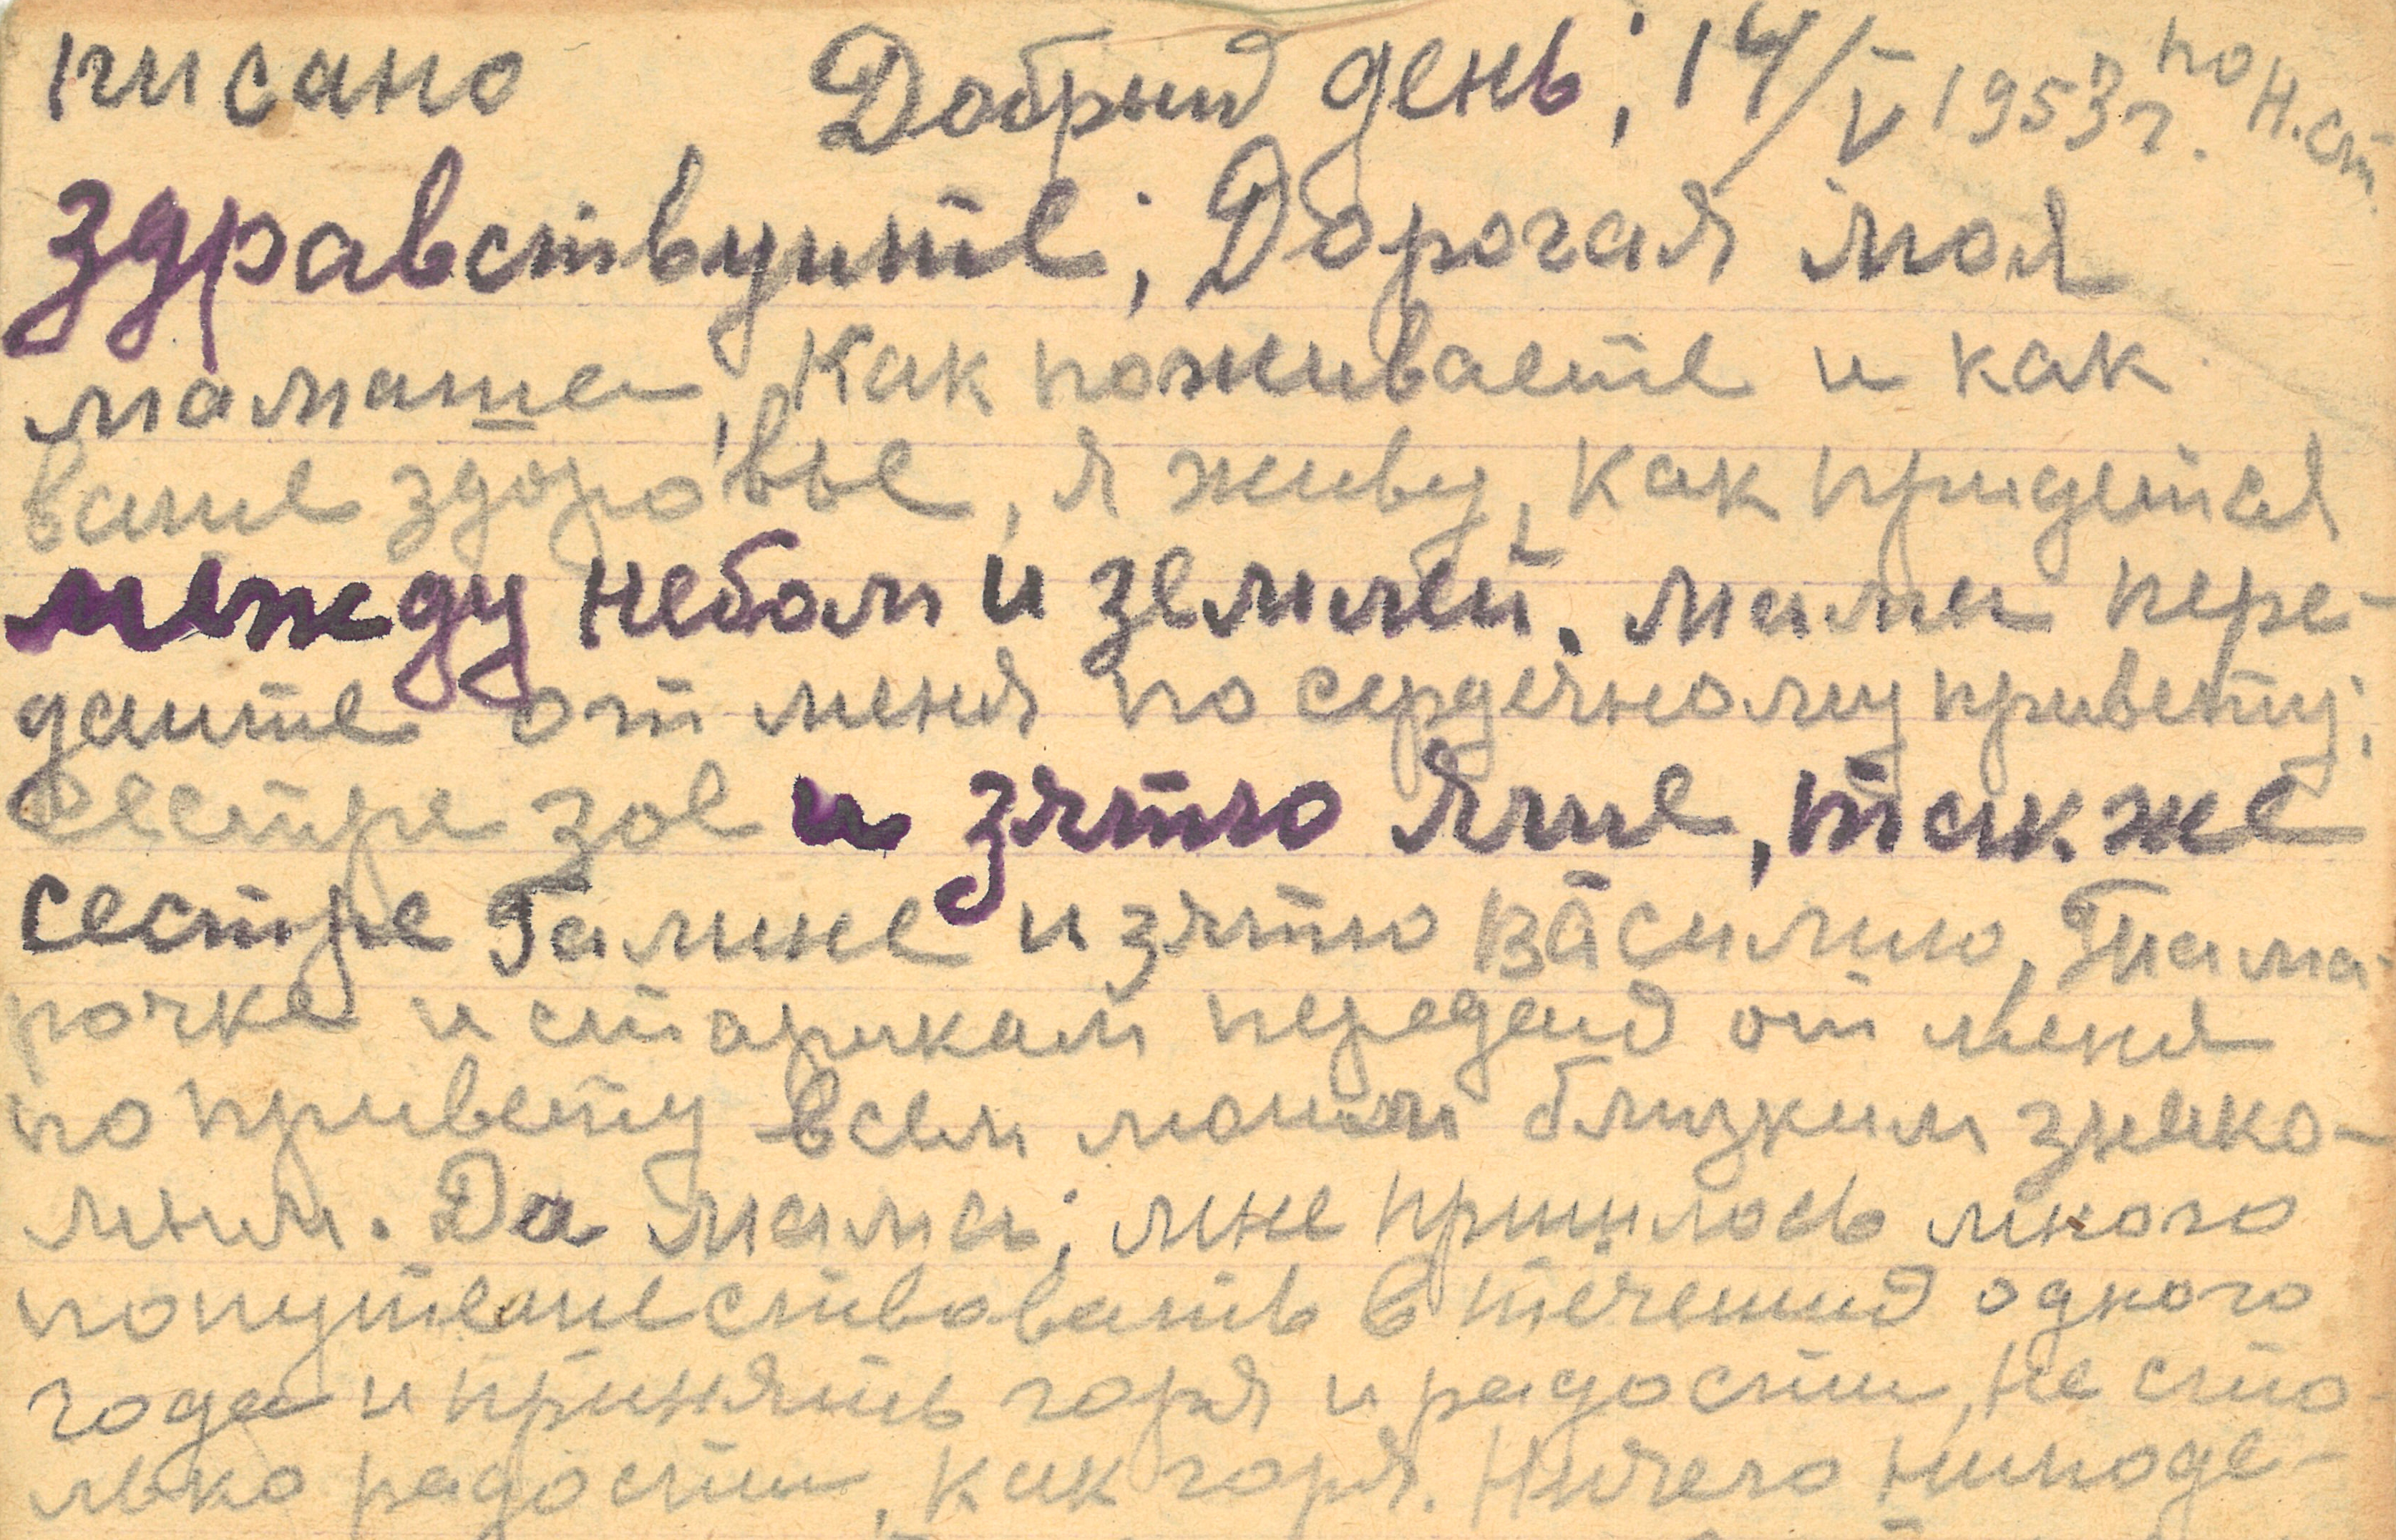 писано Добрый день; 14/V 1953г. по н.ст.
здравствуите; Дорогая моя
мамаша, Как поживаете и как
ваше здоровье, я живу, как придется
между небом и землей. мама пере-
даите от меня по сердечному привету;
сестре зое и зятю яше, также
сестре Галине и зятю Василию, Тама-
рочке и старикам передай от меня
по привету всем моим близким знако-
мым. Да мама; мне пришлось много
попутешествовать в течений одного
года и принять горя и радости, не сто-
лько радости, как горя. Ничего неподе-